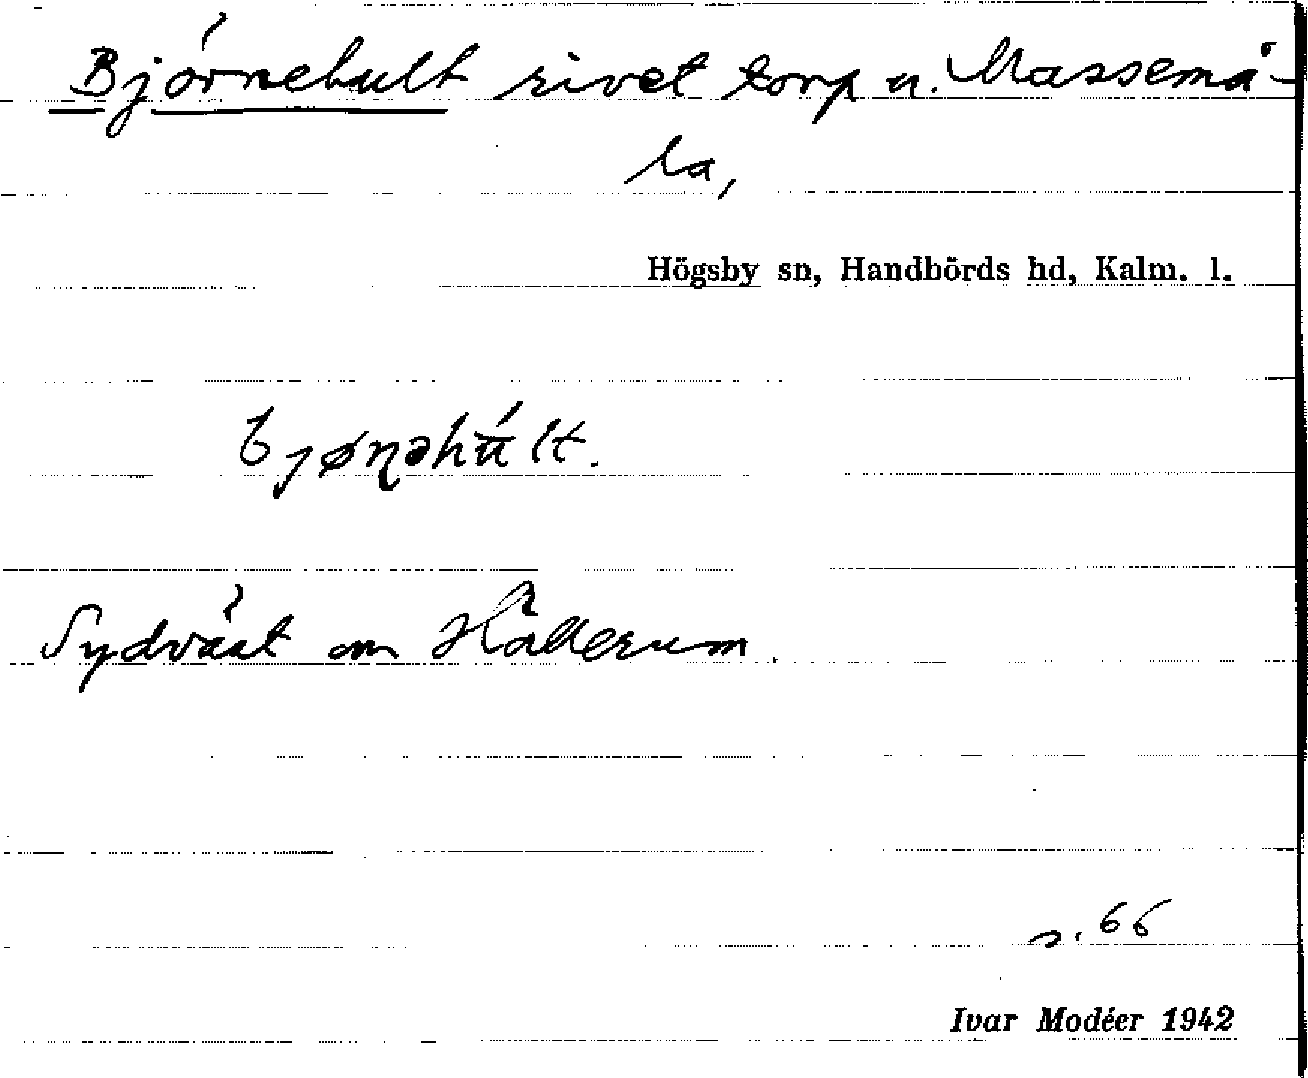 Björnehult rivet torp u. Massemå-
la,
Högsby sn, Handbörds hd, Kalm. l.
bjøɳəhúlt.
Sydväst om Hällerum.
s. 66
Ivar Modéer 1942